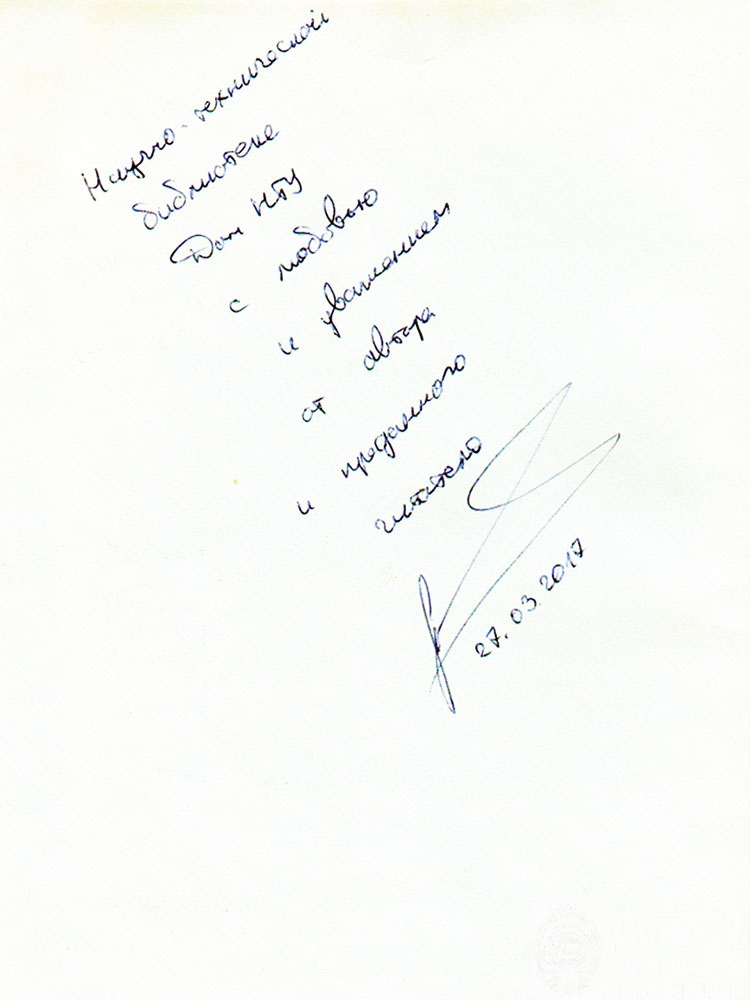 Научно-технической
библиотеке
Дон НТУ
с любовью
и уважением
от автора
и преданного
читателя
27.03.2017